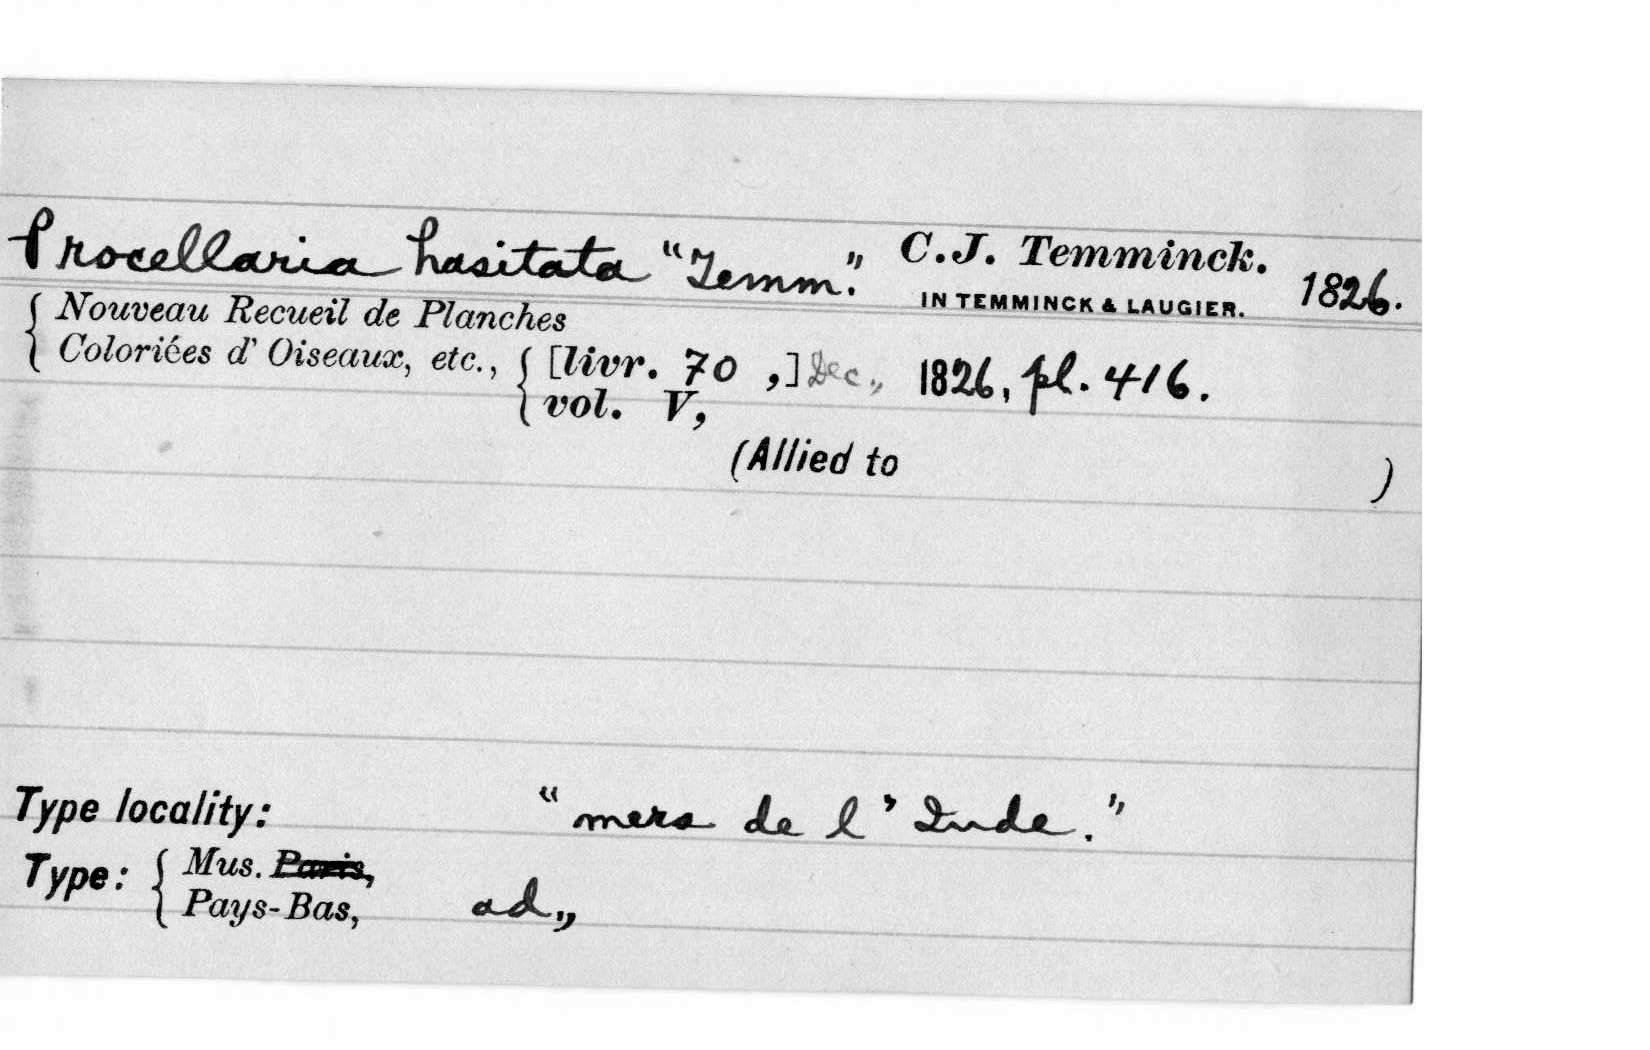 Procellaria hasitata "Temm." C.J. Temminck. 1826.
IN TEMMINCK & LAUGIER.
Nouveau Recueil de Planches
Coloriées d' Oiseaux, etc., [livr. 70 ,] Dec., 1826, pl. 416.
vol. V,
(Allied to )
Type locality: "mers de l'Inde."
Type: Mus. Paris,
Pays-Bas, ad.,